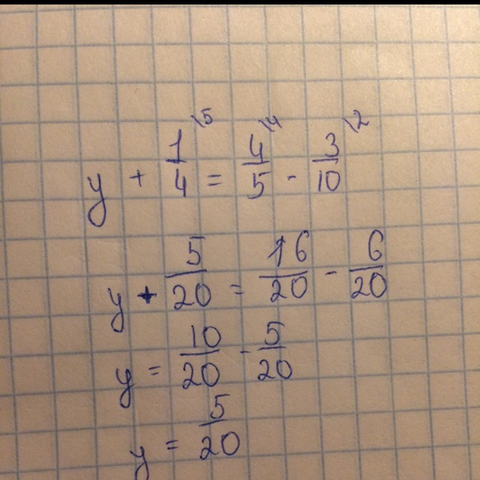 y + 1/4 \5 = 4/5 \4 - 3/10 \2
y + 5/20 = 16/20 - 6/20
y = 10/20 - 5/20
y = 5/20